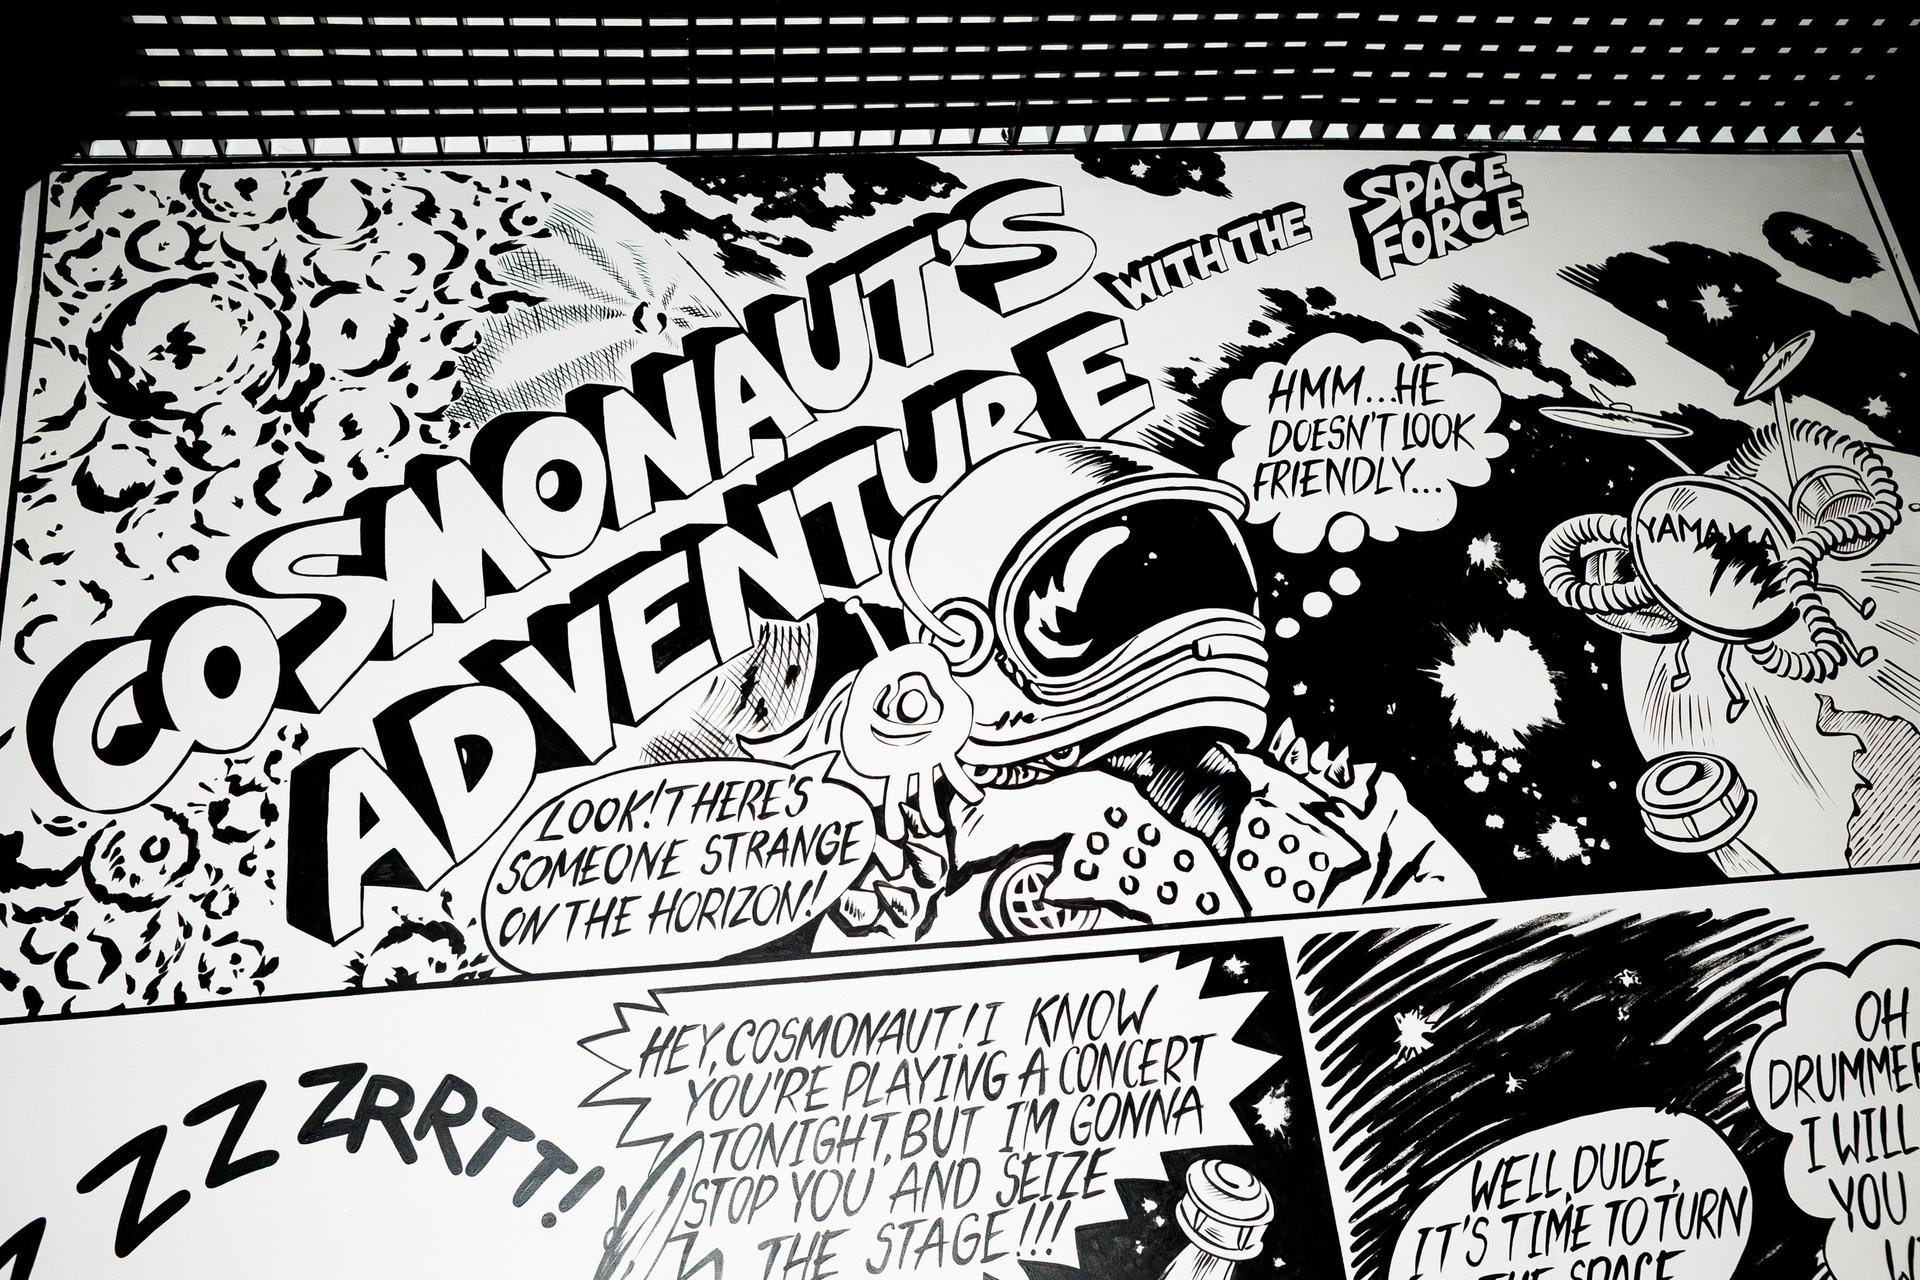 COSMONAUT'S
ADVENTURE
WITH THE
SPACE
FORCE
HMM...HE
DOESN'T LOOK
FRIENDLY...
LOOK! THERE'S
SOMEONE STRANGE
ON THE HORIZON!
ZZZRRTT!
HEY, COSMONAUT! I KNOW
YOU'RE PLAYING A CONCERT
TONIGHT, BUT I'M GONNA
STOP YOU AND SEIZE
THE STAGE!!!
WELL, DUDE,
IT'S TIME TO TURN
THE SPACE
OH
DRUMMER
I WILL
YOU